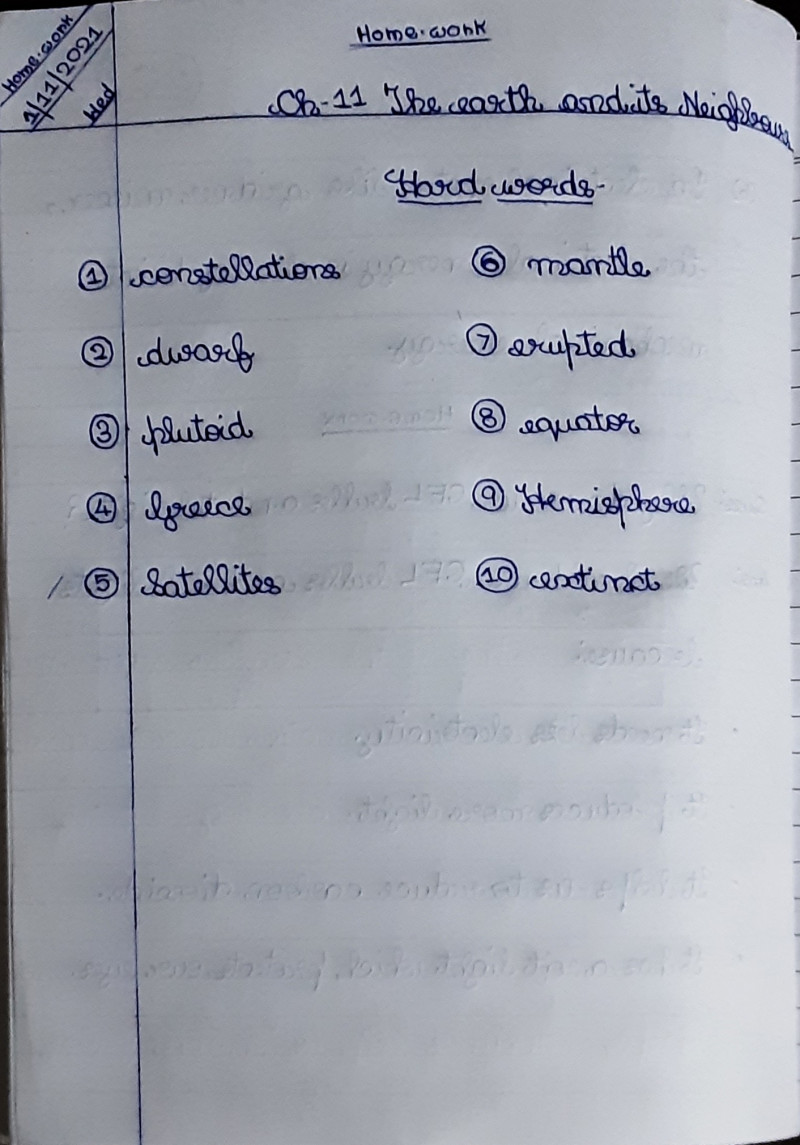 Home.work
1/11/2021
Wed
Home.work
Ch-11 The earth and its Neighbours
Hard words-
① constellations
② dwarf
③ plutoid
④ Greece
⑤ Satellites
⑥ mantle
⑦ erupted
⑧ equator
⑨ Hemisphere
⑩ extinct